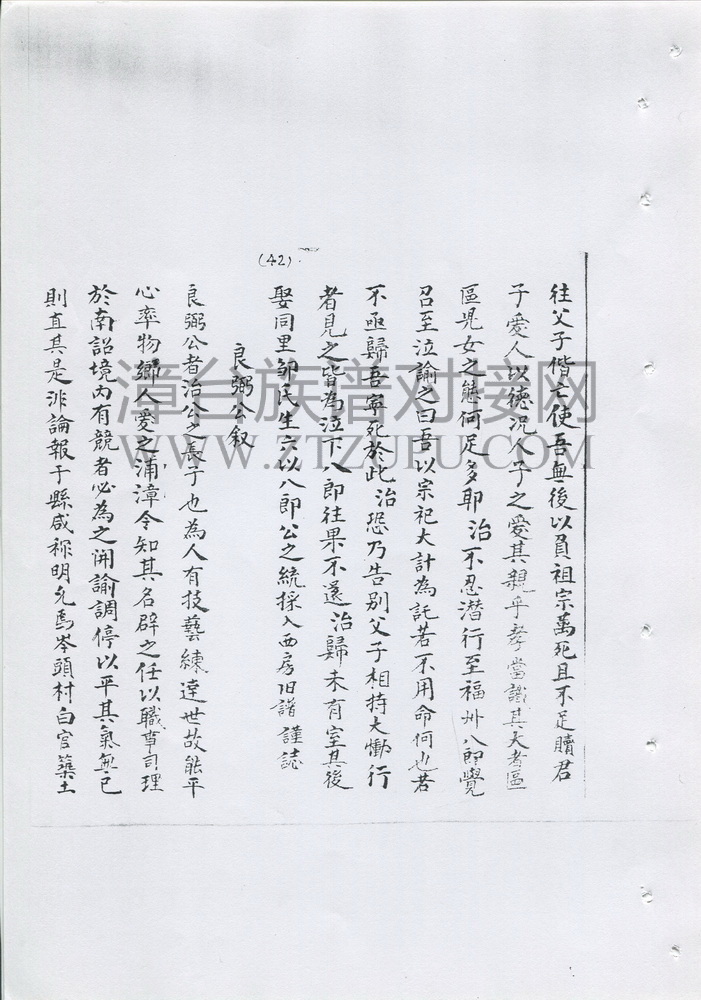 (42)
往父子偕亡使吾無後以負祖宗萬死且不足贖君
子愛人以德况人子之愛其親乎孝當識其大者區
區児女之態何足多耶治不忍潜行至福州八郎覺
召至泣諭之曰吾以宗祀大計為託若不用命何也若
不亟歸吾寧死於此治恐乃告别父子相持大慟行
者見之皆為泣下八郎往果不還治歸未有室其後
娶同里鄒氏生六以八郎公之統採入西房旧譜謹誌
良弼公叙
良弼公者治公之長子也為人有技藝練達世故能平
心率物鄉人愛之浦漳令知其名辟之任以職事司理
於南詔境內有競者必為之開諭調停以平其氣無已
則直其是非論報于縣咸称明允焉岑頭村白宮築土
漳台族谱对接网
WWW.ZTZUPU.COM